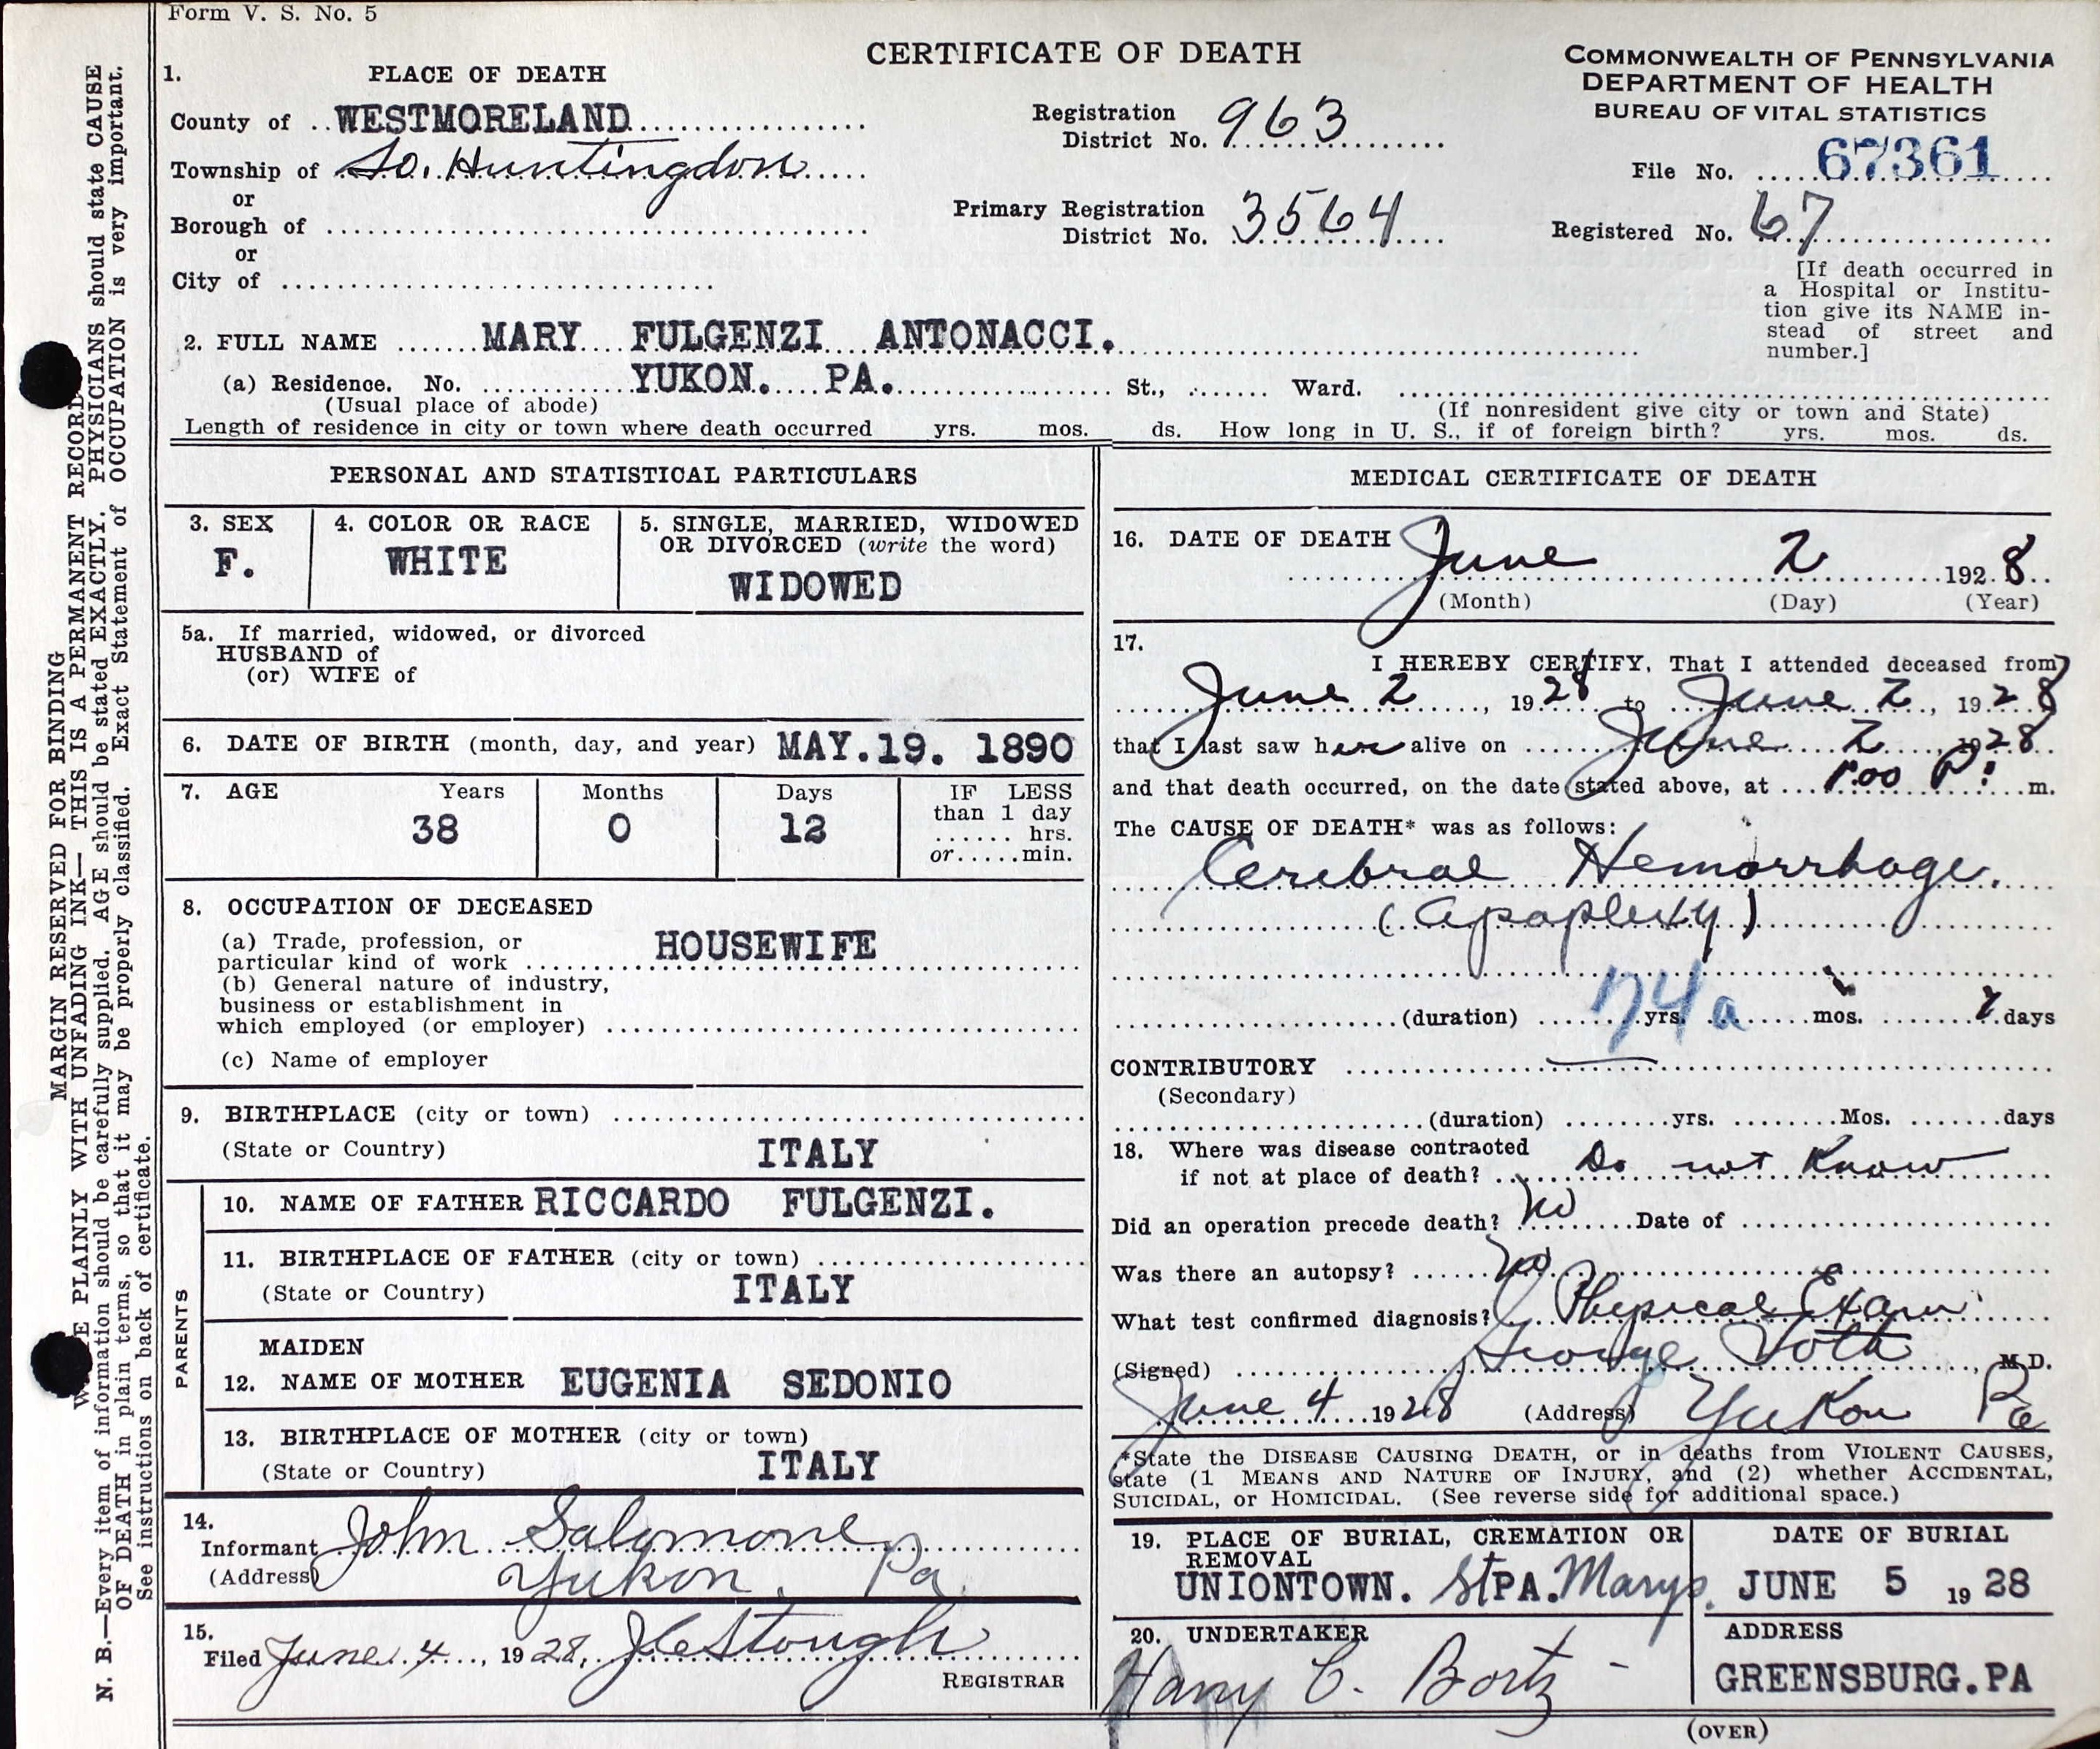 Form V. S. No. 5
CERTIFICATE OF DEATH
COMMONWEALTH OF PENNSYLVANIA
DEPARTMENT OF HEALTH
BUREAU OF VITAL STATISTICS
1. PLACE OF DEATH
County of WESTMORELAND
Township of So. Huntingdon
or
Borough of
or
City of
Registration
District No. 963
Primary Registration
District No. 3564
File No. 67361
Registered No. 67
[If death occurred in
a Hospital or Institu-
tion give its NAME in-
stead of street and
number.]
2. FULL NAME MARY FULGENZI ANTONACCI.
(a) Residence. No. YUKON. PA. St., Ward.
(Usual place of abode) (If nonresident give city or town and State)
Length of residence in city or town where death occurred yrs. mos. ds. How long in U. S., if of foreign birth? yrs. mos. ds.
PERSONAL AND STATISTICAL PARTICULARS
3. SEX
F.
4. COLOR OR RACE
WHITE
5. SINGLE, MARRIED, WIDOWED
OR DIVORCED (write the word)
WIDOWED
5a. If married, widowed, or divorced
HUSBAND of
(or) WIFE of
6. DATE OF BIRTH (month, day, and year) MAY.19. 1890
7. AGE Years Months Days IF LESS
than 1 day
hrs.
or.....min.
38 0 12
8. OCCUPATION OF DECEASED
(a) Trade, profession, or
particular kind of work HOUSEWIFE
(b) General nature of industry,
business or establishment in
which employed (or employer)
(c) Name of employer
9. BIRTHPLACE (city or town)
(State or Country) ITALY
PARENTS
10. NAME OF FATHER RICCARDO FULGENZI.
11. BIRTHPLACE OF FATHER (city or town)
(State or Country) ITALY
MAIDEN
12. NAME OF MOTHER EUGENIA SEDONIO
13. BIRTHPLACE OF MOTHER (city or town)
(State or Country) ITALY
14.
Informant John Salomone
(Address) Yukon, Pa.
15.
Filed June 4, 1928, J C Stough
REGISTRAR
MEDICAL CERTIFICATE OF DEATH
16. DATE OF DEATH June 2 1928
(Month) (Day) (Year)
17.
I HEREBY CERTIFY, That I attended deceased from
June 2, 1928 to June 2, 1928
that I last saw her alive on June 2, 1928
and that death occurred, on the date stated above, at 1:00 P. m.
The CAUSE OF DEATH* was as follows:
Cerebral Hemorrhage.
(Apoplexy)
74a
(duration) yrs. mos. days
CONTRIBUTORY
(Secondary)
(duration) yrs. Mos. days
18. Where was disease contracted
if not at place of death? Do not Know
Did an operation precede death? No Date of
Was there an autopsy? No
What test confirmed diagnosis? Physical Exam
(Signed) George, M.D.
June 4 1928 (Address) Yukon Pa
*State the DISEASE CAUSING DEATH, or in deaths from VIOLENT CAUSES,
state (1 MEANS AND NATURE OF INJURY, and (2) whether ACCIDENTAL,
SUICIDAL, or HOMICIDAL. (See reverse side for additional space.)
19. PLACE OF BURIAL, CREMATION OR
REMOVAL
UNIONTOWN. St PA. Marys.
DATE OF BURIAL
JUNE 5 1928
20. UNDERTAKER
Harry C. Bortz
ADDRESS
GREENSBURG.PA
(OVER)
MARGIN RESERVED FOR BINDING
PLAINLY WITH UNFADING INK—THIS IS A PERMANENT RECORD
N. B.—Every item of information should be carefully supplied. AGE should be stated EXACTLY. PHYSICIANS should state CAUSE
OF DEATH in plain terms, so that it may be properly classified. Exact Statement of OCCUPATION is very important.
See instructions on back of certificate.